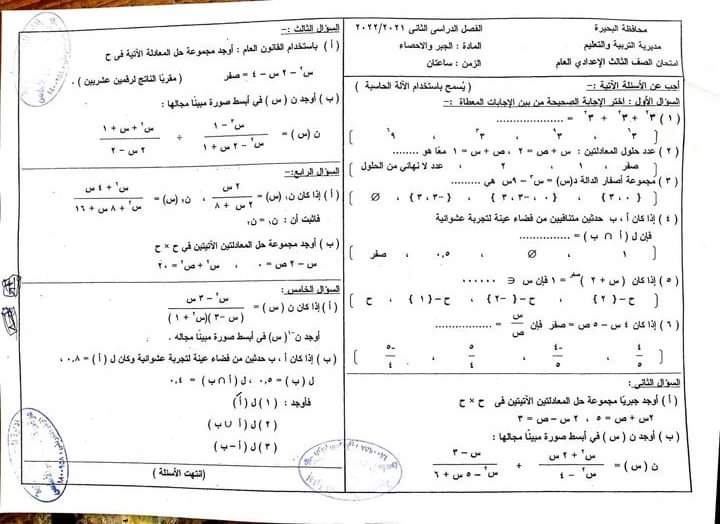 محافظة البحيرة
مديرية التربية والتعليم
امتحان الصف الثالث الإعدادي العام
الفصل الدراسى الثانى ٢٠٢٢/٢٠٢١
المادة : الجبر والاحصاء
الزمن : ساعتان
أجب عن الأسئلة الآتية :- ( يُسمح باستخدام الآلة الحاسبة )
السؤال الأول : اختر الإجابة الصحيحة من بين الإجابات المعطاة :-
( ٢ ) عدد حلول المعادلتين : س + ص = ٢ ، ص + س = ١ معًا هو ........
صفر ، ١ ، ٢ ، عدد لا نهائي من الحلول
{ ٠ ، ٣ } ، { ٠ ، -٣ ، ٣ } ، { -٣ ، ٣ } ، Ø
( ٤ ) إذا كان أ ، ب حدثين متنافيين من فضاء عينة لتجربة عشوائية
فإن ل ( أ ∩ ب ) = ...............
١ ، Ø ، ٠,٥ ، صفر
( ٥ ) إذا كان ( س + ٢ )^صفر = ١ فإن س ∈ ......
ح - { ٢ } ، ح - { -٢ } ، ح - { ١ } ، ح
( ٦ ) إذا كان ٤ س - ٥ ص = صفر فإن س/ص = ................
السؤال الثانى :
( أ ) أوجد جبريًا مجموعة حل المعادلتين الآتيتين فى ح × ح
٢س + ص = ٥ ، ٢ س - ص = ٣
( ب ) أوجد ن ( س ) في أبسط صورة مبينًا مجالها :
ن ( س ) = (س٢ + ٢ س)/(س٢ - ٤) + (س - ٣)/(س٢ - ٥ س + ٦)
السؤال الثالث :-
( أ ) باستخدام القانون العام : أوجد مجموعة حل المعادلة الآتية فى ح
س٢ - ٢ س - ٤ = صفر ( مقربًا الناتج لرقمين عشريين ) .
( ب ) أوجد ن ( س ) في أبسط صورة مبينًا مجالها :
ن ( س ) = (س٣ - ١)/(س٢ - ٢ س + ١) ÷ (س٢ + س + ١)/(٢ س - ٢)
السؤال الرابع:-
( أ ) إذا كان ن١ (س) = ٢ س/(٢ س + ٨) ، ن٢ (س) = (س٢ + ٤ س)/(س٢ + ٨ س + ١٦)
فاثبت أن : ن١ = ن٢
( ب ) أوجد مجموعة حل المعادلتين الآتيتين في ح × ح
س - ٢ ص = ٠ ، س٢ + ص٢ = ٢٠
السؤال الخامس :
( أ ) إذا كان ن ( س ) = (س٢ - ٣ س)/(س - ٣)(س٢ + ١)
أوجد ن-١ ( س) في أبسط صورة مبينًا مجاله .
( ب ) إذا كان أ ، ب حدثين من فضاء عينة لتجربة عشوائية وكان ل ( أ ) = ٠,٨ ،
ل ( ب ) = ٠,٥ ، ل ( أ ∩ ب ) = ٠,٤
فأوجد : ( ١ ) ل ( أَ )
( ٢ ) ل ( أ ∪ ب )
( ٣ ) ل ( أ - ب )
( انتهت الأسئلة )